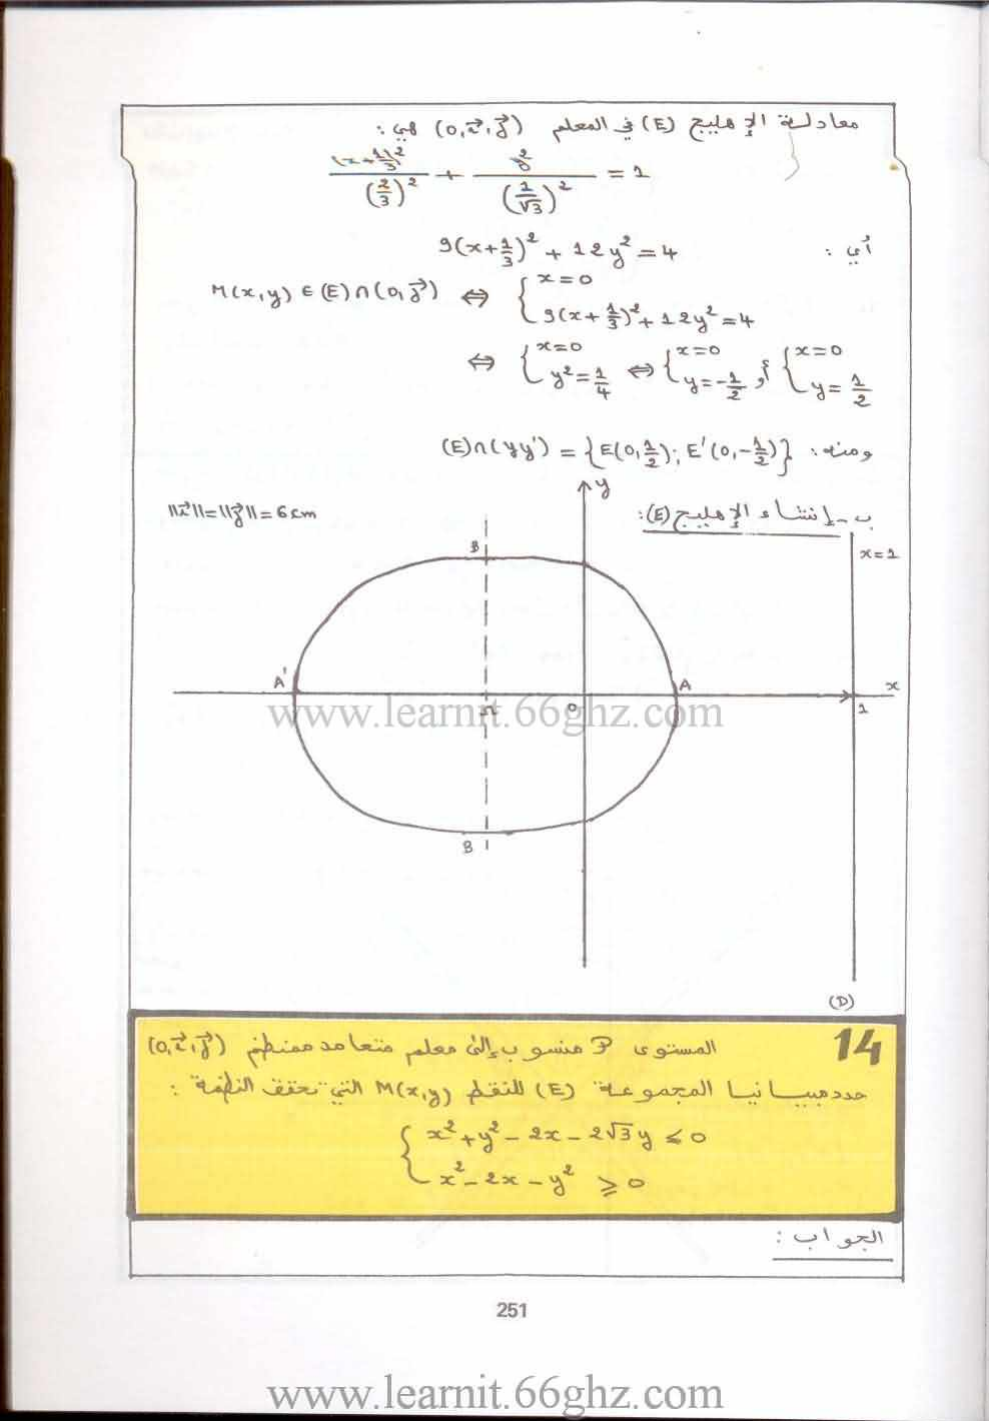 معادلة الإهليج (E) في المعلم (0,i⃗,j⃗) هي :
(x+1/3)²/(2/3)² + y²/(1/√3)² = 1
أي : 9(x+1/3)² + 12y² = 4
M(x,y) ∈ (E)∩(0,j⃗) ⇔ { x=0
9(x+1/3)²+12y²=4
⇔ { x=0 ⇔ { x=0 أو { x=0
y²=1/4 y=-1/2 y=1/2
ومنه : (E)∩(yy') = {E(0,1/2); E'(0,-1/2)}
y
||i⃗||=||j⃗||=6cm
ب - إنشاء الإهليج (E):
B x=1
A' A x
Ω 0 1
www.learnit.66ghz.com
B'
(D)
14 المستوى P منسوب إلى معلم متعامد ممنظم (0,i⃗,j⃗)
حدد مبيانيا المجموعة (E) للنقط M(x,y) التي تحقق النظمة :
{ x²+y²-2x-2√3y ≤ 0
x²-2x-y² ≥ 0
الجواب :
251
www.learnit.66ghz.com